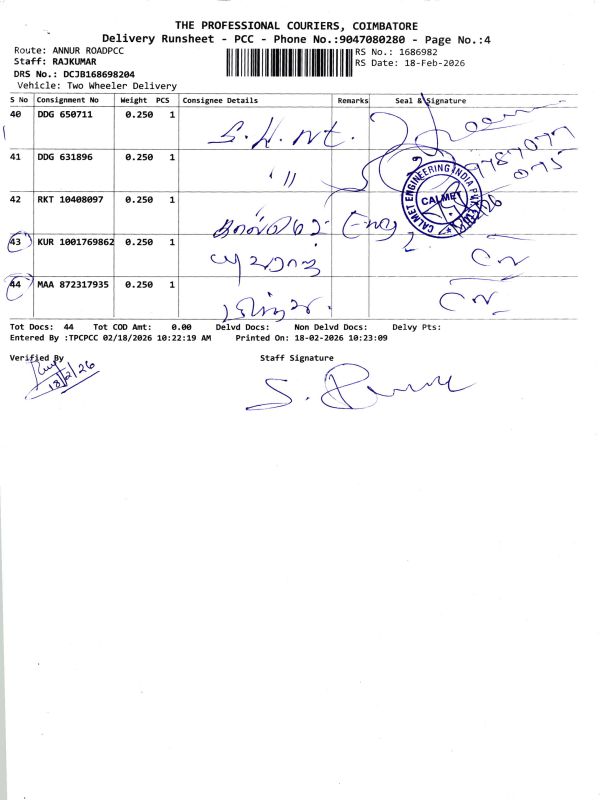 THE PROFESSIONAL COURIERS, COIMBATORE
Delivery Runsheet - PCC - Phone No.:9047080280 - Page No.:4
Route: ANNUR ROADPCC
RS No.: 1686982
Staff: RAJKUMAR
RS Date: 18-Feb-2026
DRS No.: DCJB168698204
Vehicle: Two Wheeler Delivery
S No Consignment No Weight PCS Consignee Details Remarks Seal & Signature
40 DDG 650711 0.250 1 S. H. Nt.
41 DDG 631896 0.250 1 "
9787077
075
CALMET ENGINEERING INDIA
CALMET
42 RKT 10408097 0.250 1 Eng
43 KUR 1001769862 0.250 1
44 MAA 872317935 0.250 1
Tot Docs: 44 Tot COD Amt: 0.00 Delvd Docs: Non Delvd Docs: Delvy Pts:
Entered By :TPCPCC 02/18/2026 10:22:19 AM Printed On: 18-02-2026 10:23:09
Verified By Staff Signature
18/2/26